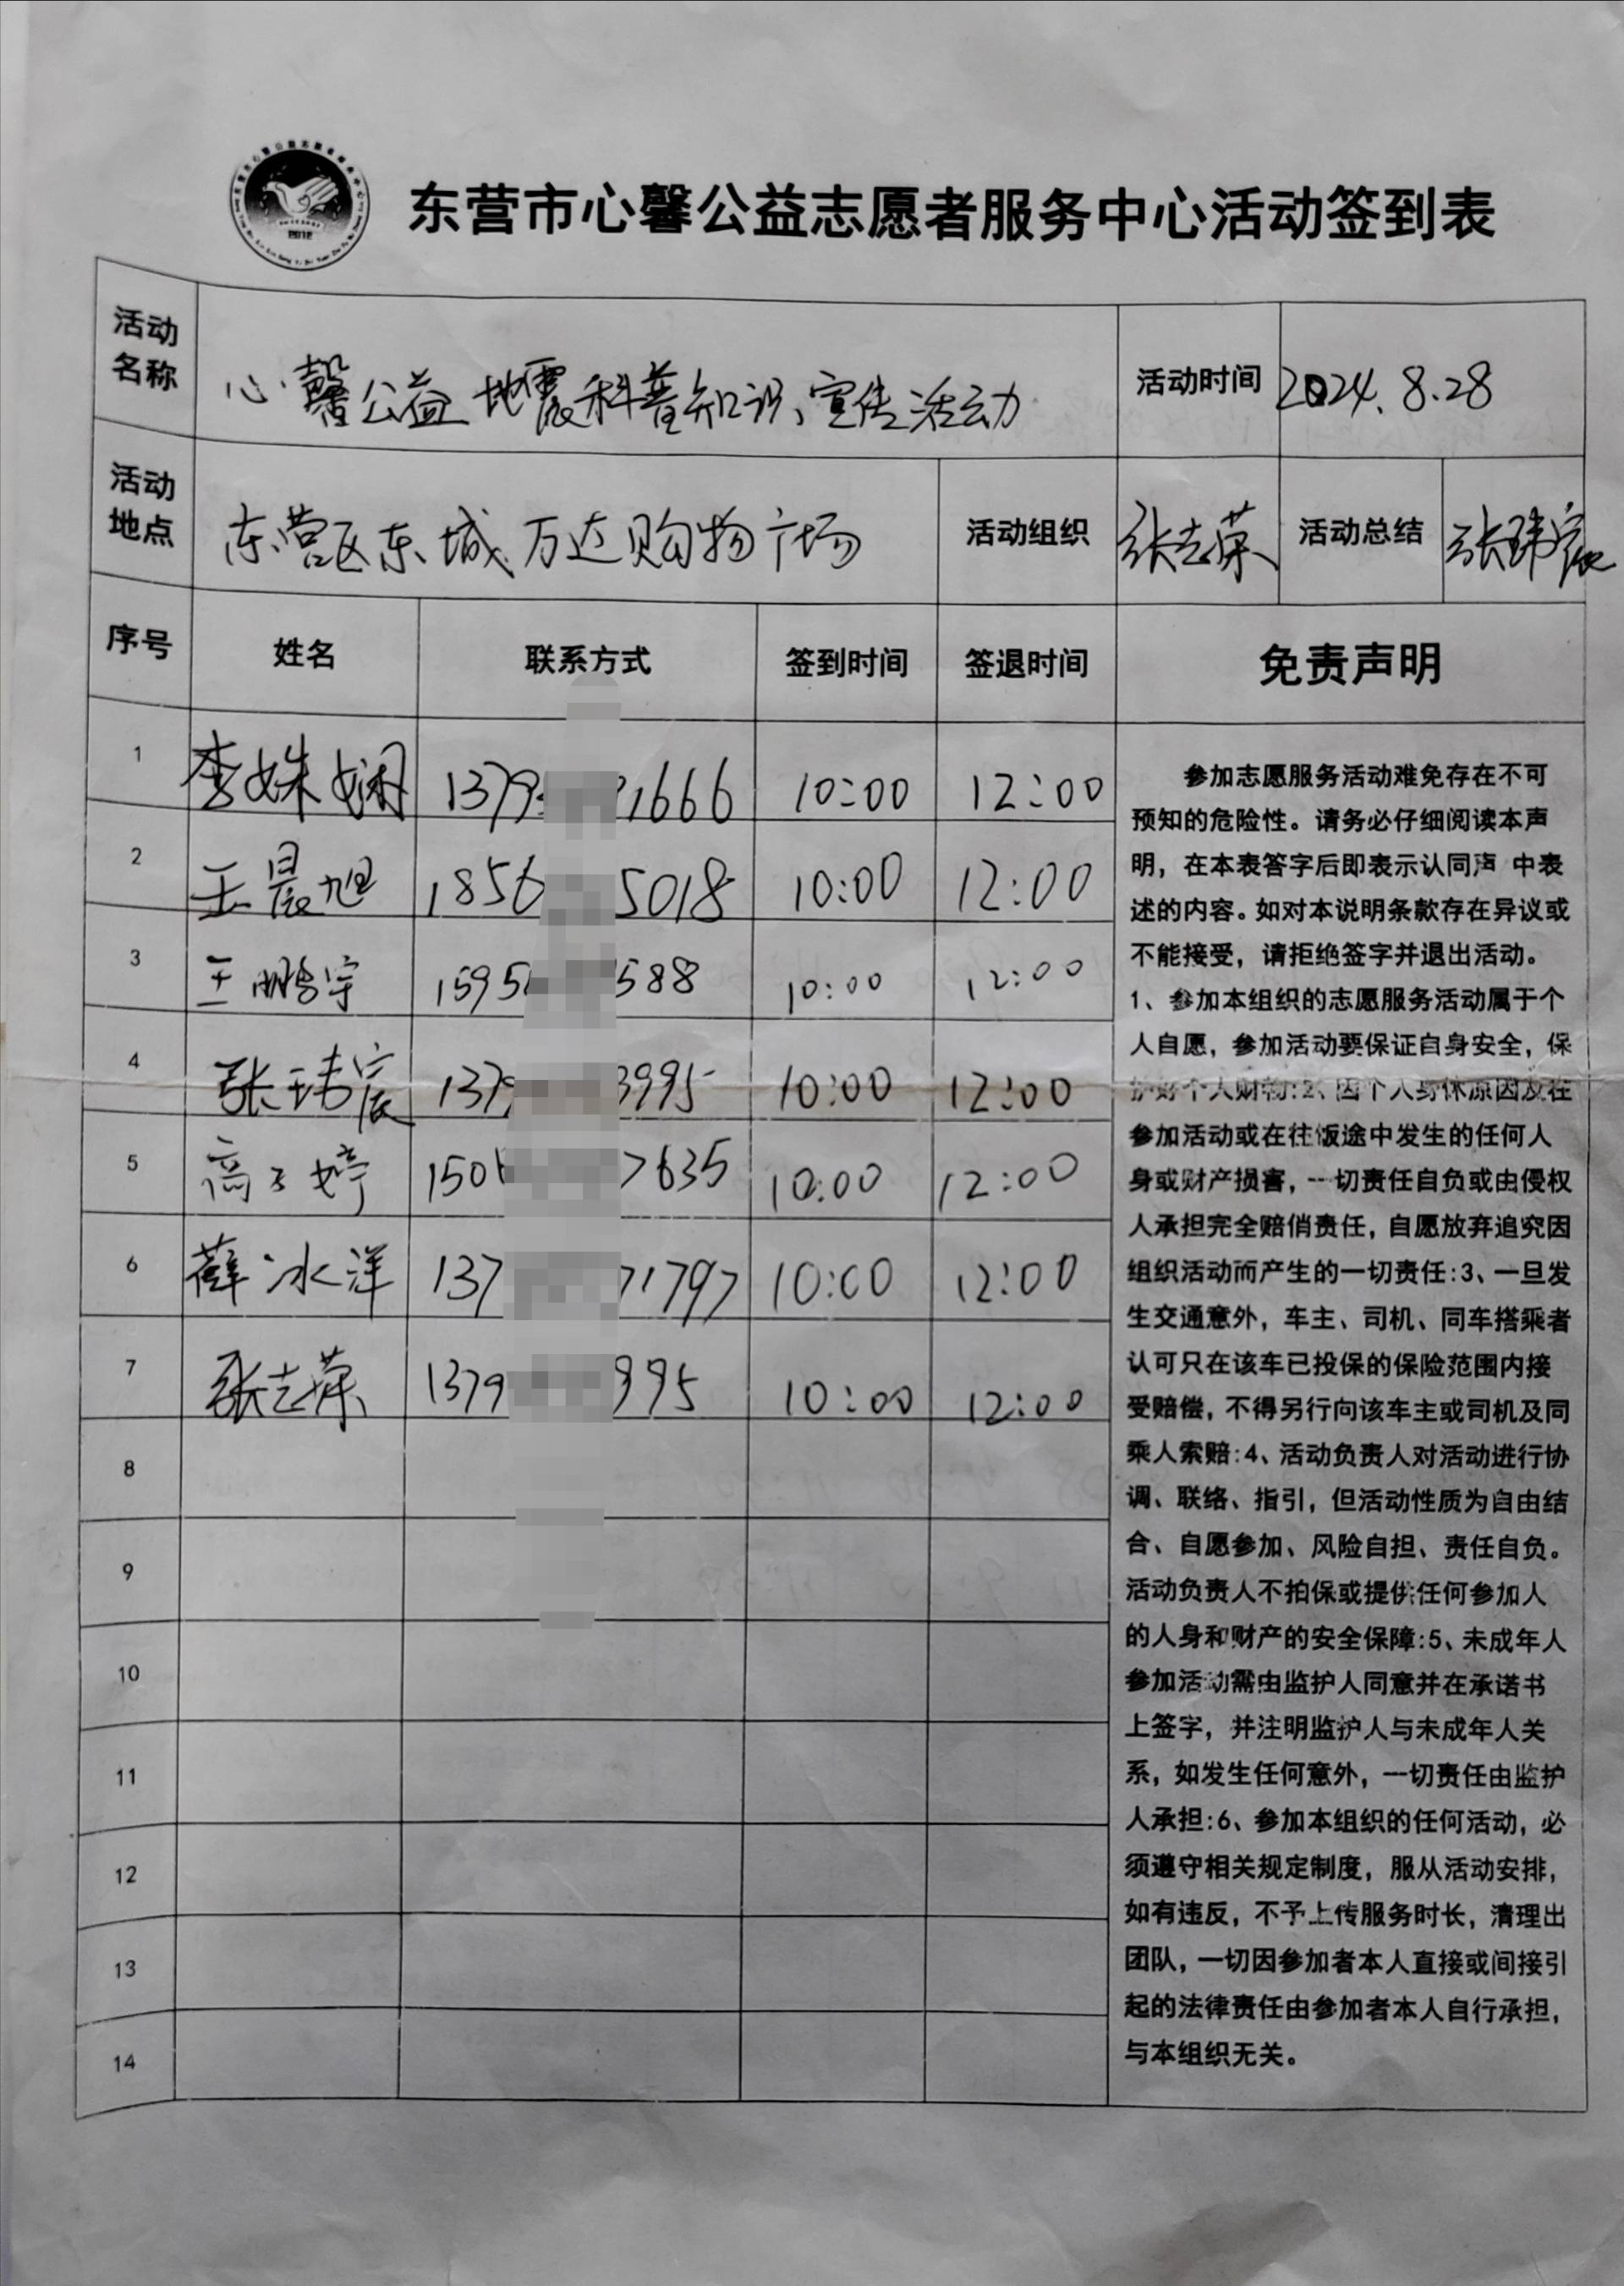 东营市心馨公益志愿者服务中心活动签到表
活动名称 心馨公益地震科普知识宣传活动 活动时间 2024.8.28
活动地点 东营区东城万达购物广场 活动组织 张志荣 活动总结 张玮宸
序号 姓名 联系方式 签到时间 签退时间 免责声明
1 李姝娴 1379 1666 10:00 12:00
2 王晨旭 1856 5018 10:00 12:00
3 王鹏宇 1595 588 10:00 12:00
4 张玮宸 1379 3995 10:00 12:00
5 高子婷 150 7635 10:00 12:00
6 薛冰洋 137 71797 10:00 12:00
7 张志荣 1379 995 10:00 12:00
8
9
10
11
12
13
14
参加志愿服务活动难免存在不可
预知的危险性。请务必仔细阅读本声
明，在本表答字后即表示认同声 中表
述的内容。如对本说明条款存在异议或
不能接受，请拒绝签字并退出活动。
1、参加本组织的志愿服务活动属于个
人自愿，参加活动要保证自身安全，保
护好个人财物:2、因个人身体原因及在
参加活动或在往饭途中发生的任何人
身或财产损害，一切责任自负或由侵权
人承担完全赔俏责任，自愿放弃追究因
组织活动而产生的一切责任:3、一旦发
生交通意外，车主、司机、同车搭乘者
认可只在该车已投保的保险范围内接
受赔偿，不得另行向该车主或司机及同
乘人索赔:4、活动负责人对活动进行协
调、联络、指引，但活动性质为自由结
合、自愿参加、风险自担、责任自负。
活动负责人不拍保或提供任何参加人
的人身和财产的安全保障:5、未成年人
参加活动需由监护人同意并在承诺书
上签字，并注明监护人与未成年人关
系，如发生任何意外，一切责任由监护
人承担:6、参加本组织的任何活动，必
须遵守相关规定制度，服从活动安排，
如有违反，不予上传服务时长，清理出
团队，一切因参加者本人直接或间接引
起的法律责任由参加者本人自行承担，
与本组织无关。